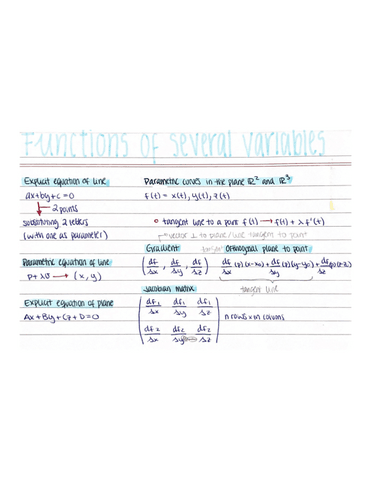 Functions of several variables
Explicit equation of line
ax+by+c=0
→ 2 points
substituting 2 letters
(with one as parameter)
Parametric equation of line
p+λv → (x, y)
Explicit equation of plane
Ax+By+Cz+D=0
Parametric curves in the plane ℝ² and ℝ³
f(t) = x(t), y(t), z(t)
→ tangent line to a point f(t) → f(t) + λ f'(t)
vector ⊥ to plane/line tangent to point
Gradient
(df/dx, df/dy, df/dz)
tangent Orthogonal plane to point
df/dx (p)(x-x₀) + df/dy (p)(y-y₀) + df/dz (p)(z-z₀)
tangent line
Jacobian matrix
(df₁/dx df₁/dy df₁/dz)
(df₂/dx df₂/dy df₂/dz)
n rows × m colums